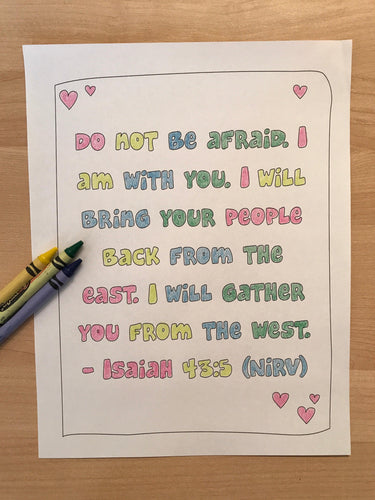 Do not be afraid. I
am with you. I will
bring your people
back from the
east. I will gather
you from the west.
- Isaiah 43:5 (NIRV)